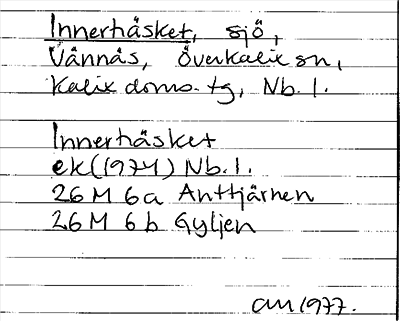 Innerhåsket, sjö,
Vännäs, Överkalix sn,
Kalix doms. tg, Nb. l.
Innerhåsket
ek (1974) Nb. l.
26 M 6a Anttjärnen
26 M 6b Gyljen
am 1977.